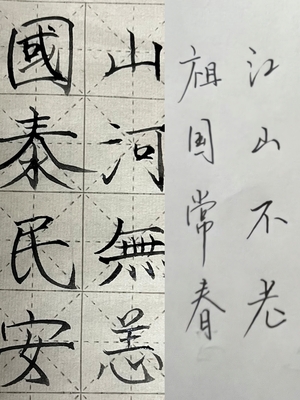 山河無恙
國泰民安
江山不老
祖国常春